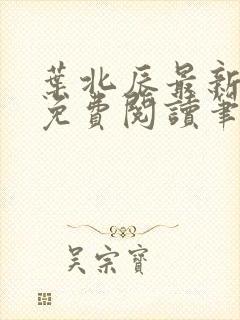 葉北辰最新
免費閱讀筆
吴宗寶